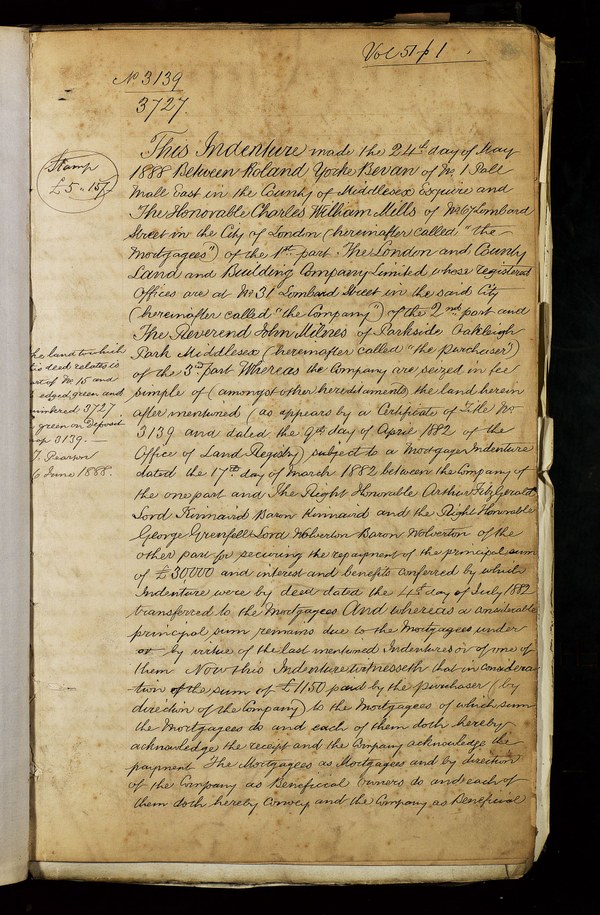 Vol 51 p 1
No 3139
3727.
Stamp
£5 " 15/-
This Indenture made the 24th day of May
1888 Between Roland Yorke Bevan of No 1 Pall
Mall East in the County of Middlesex Esquire and
The Honorable Charles William Mills of No 67 Lombard
Street in the City of London (hereinafter called "the
Mortgagees") of the 1st part The London and County
Land and Building Company Limited whose registered
Offices are at No 31 Lombard Street in the said City
(hereinafter called "the Company") of the 2nd part and
The Reverend John Milnes of Parkside Oakleigh
Park Middlesex (hereinafter called "the purchaser")
of the 3rd part Whereas the Company are seized in fee
simple of (amongst other hereditaments) the land herein
after mentioned (as appears by a Certificate of Title No
3139 and dated the 9th day of April 1882 of the
Office of Land Registry) subject to a Mortgage Indenture
dated the 17th day of March 1882 between the Company of
the one part and The Right Honorable Arthur FitzGerald
Lord Kinnaird Baron Kinnaird and the Right Honorable
George Grenfell Lord Wolverton Baron Wolverton of the
other part for securing the repayment of the principal sum
of £30000 and interest and benefits conferred by which
Indenture were by deed dated the 4th day of July 1882
transferred to the Mortgagees And whereas a considerable
principal sum remains due to the Mortgagees under
or by virtue of the last mentioned Indentures or of one of
them Now this Indenture witnesseth that in considera
-tion of the sum of £1150 paid by the purchaser (by
direction of the Company) to the Mortgagees of which sum
the Mortgagees do and each of them doth hereby
acknowledge the receipt and the Company acknowledge the
payment The Mortgagees as Mortgagees and by direction
of the Company as Beneficial owners do and each of
them doth hereby Convey and the Company as Beneficial
he land to which
is deed relates is
art of No 15 and
edged green and
umbered 3727
green on Deposit
ap 3139. —
J. Pearson
6 June 1888.